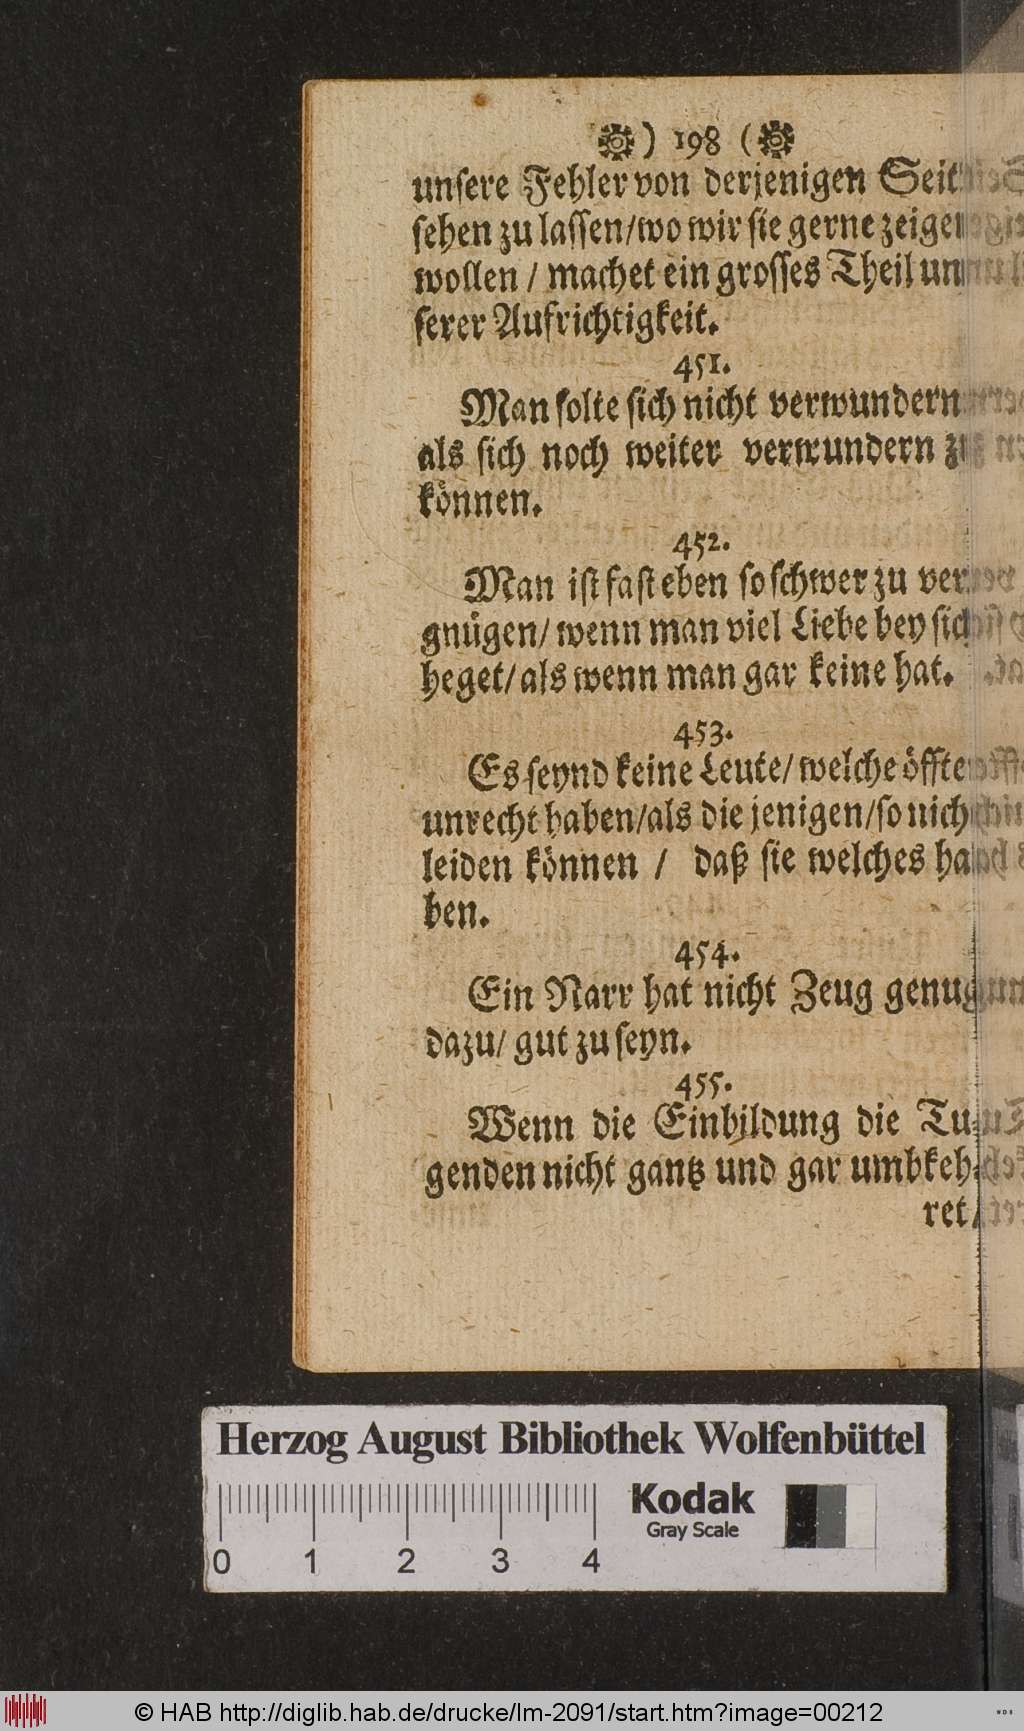 ) 198 (
unsere Fehler von derjenigen Seit
sehen zu lassen/wo wir sie gerne zeigen
wollen / machet ein grosses Theil un
serer Aufrichtigkeit.
451.
Man solte sich nicht verwundern
als sich noch weiter verwundern zu
können.
452.
Man ist fast eben so schwer zu ver
gnügen/ wenn man viel Liebe bey sich
heget/als wenn man gar keine hat.
453.
Es seynd keine Leute/ welche öffte
unrecht haben/als die jenigen/so nich
leiden können / daß sie welches ha
ben.
454.
Ein Narr hat nicht Zeug genug
dazu/ gut zu seyn.
455.
Wenn die Einbildung die Tu
genden nicht gantz und gar umbkeh
ret/
Herzog August Bibliothek Wolfenbüttel
Kodak
Gray Scale
0 1 2 3 4
© HAB http://diglib.hab.de/drucke/lm-2091/start.htm?image=00212